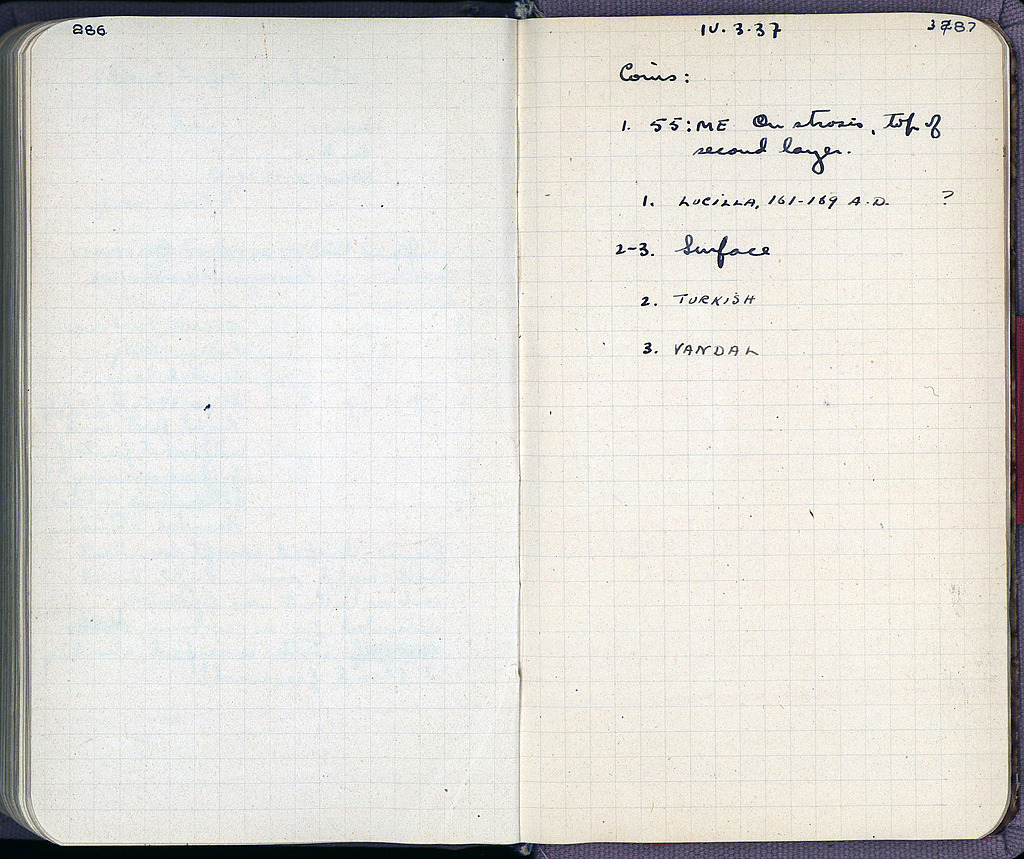 286
IV.3.37
3287
Coins:
1. 55:ME On strosis, top of
second layer.
1. LUCILLA, 161-169 A.D. ?
2-3. Surface
2. TURKISH
3. VANDAL